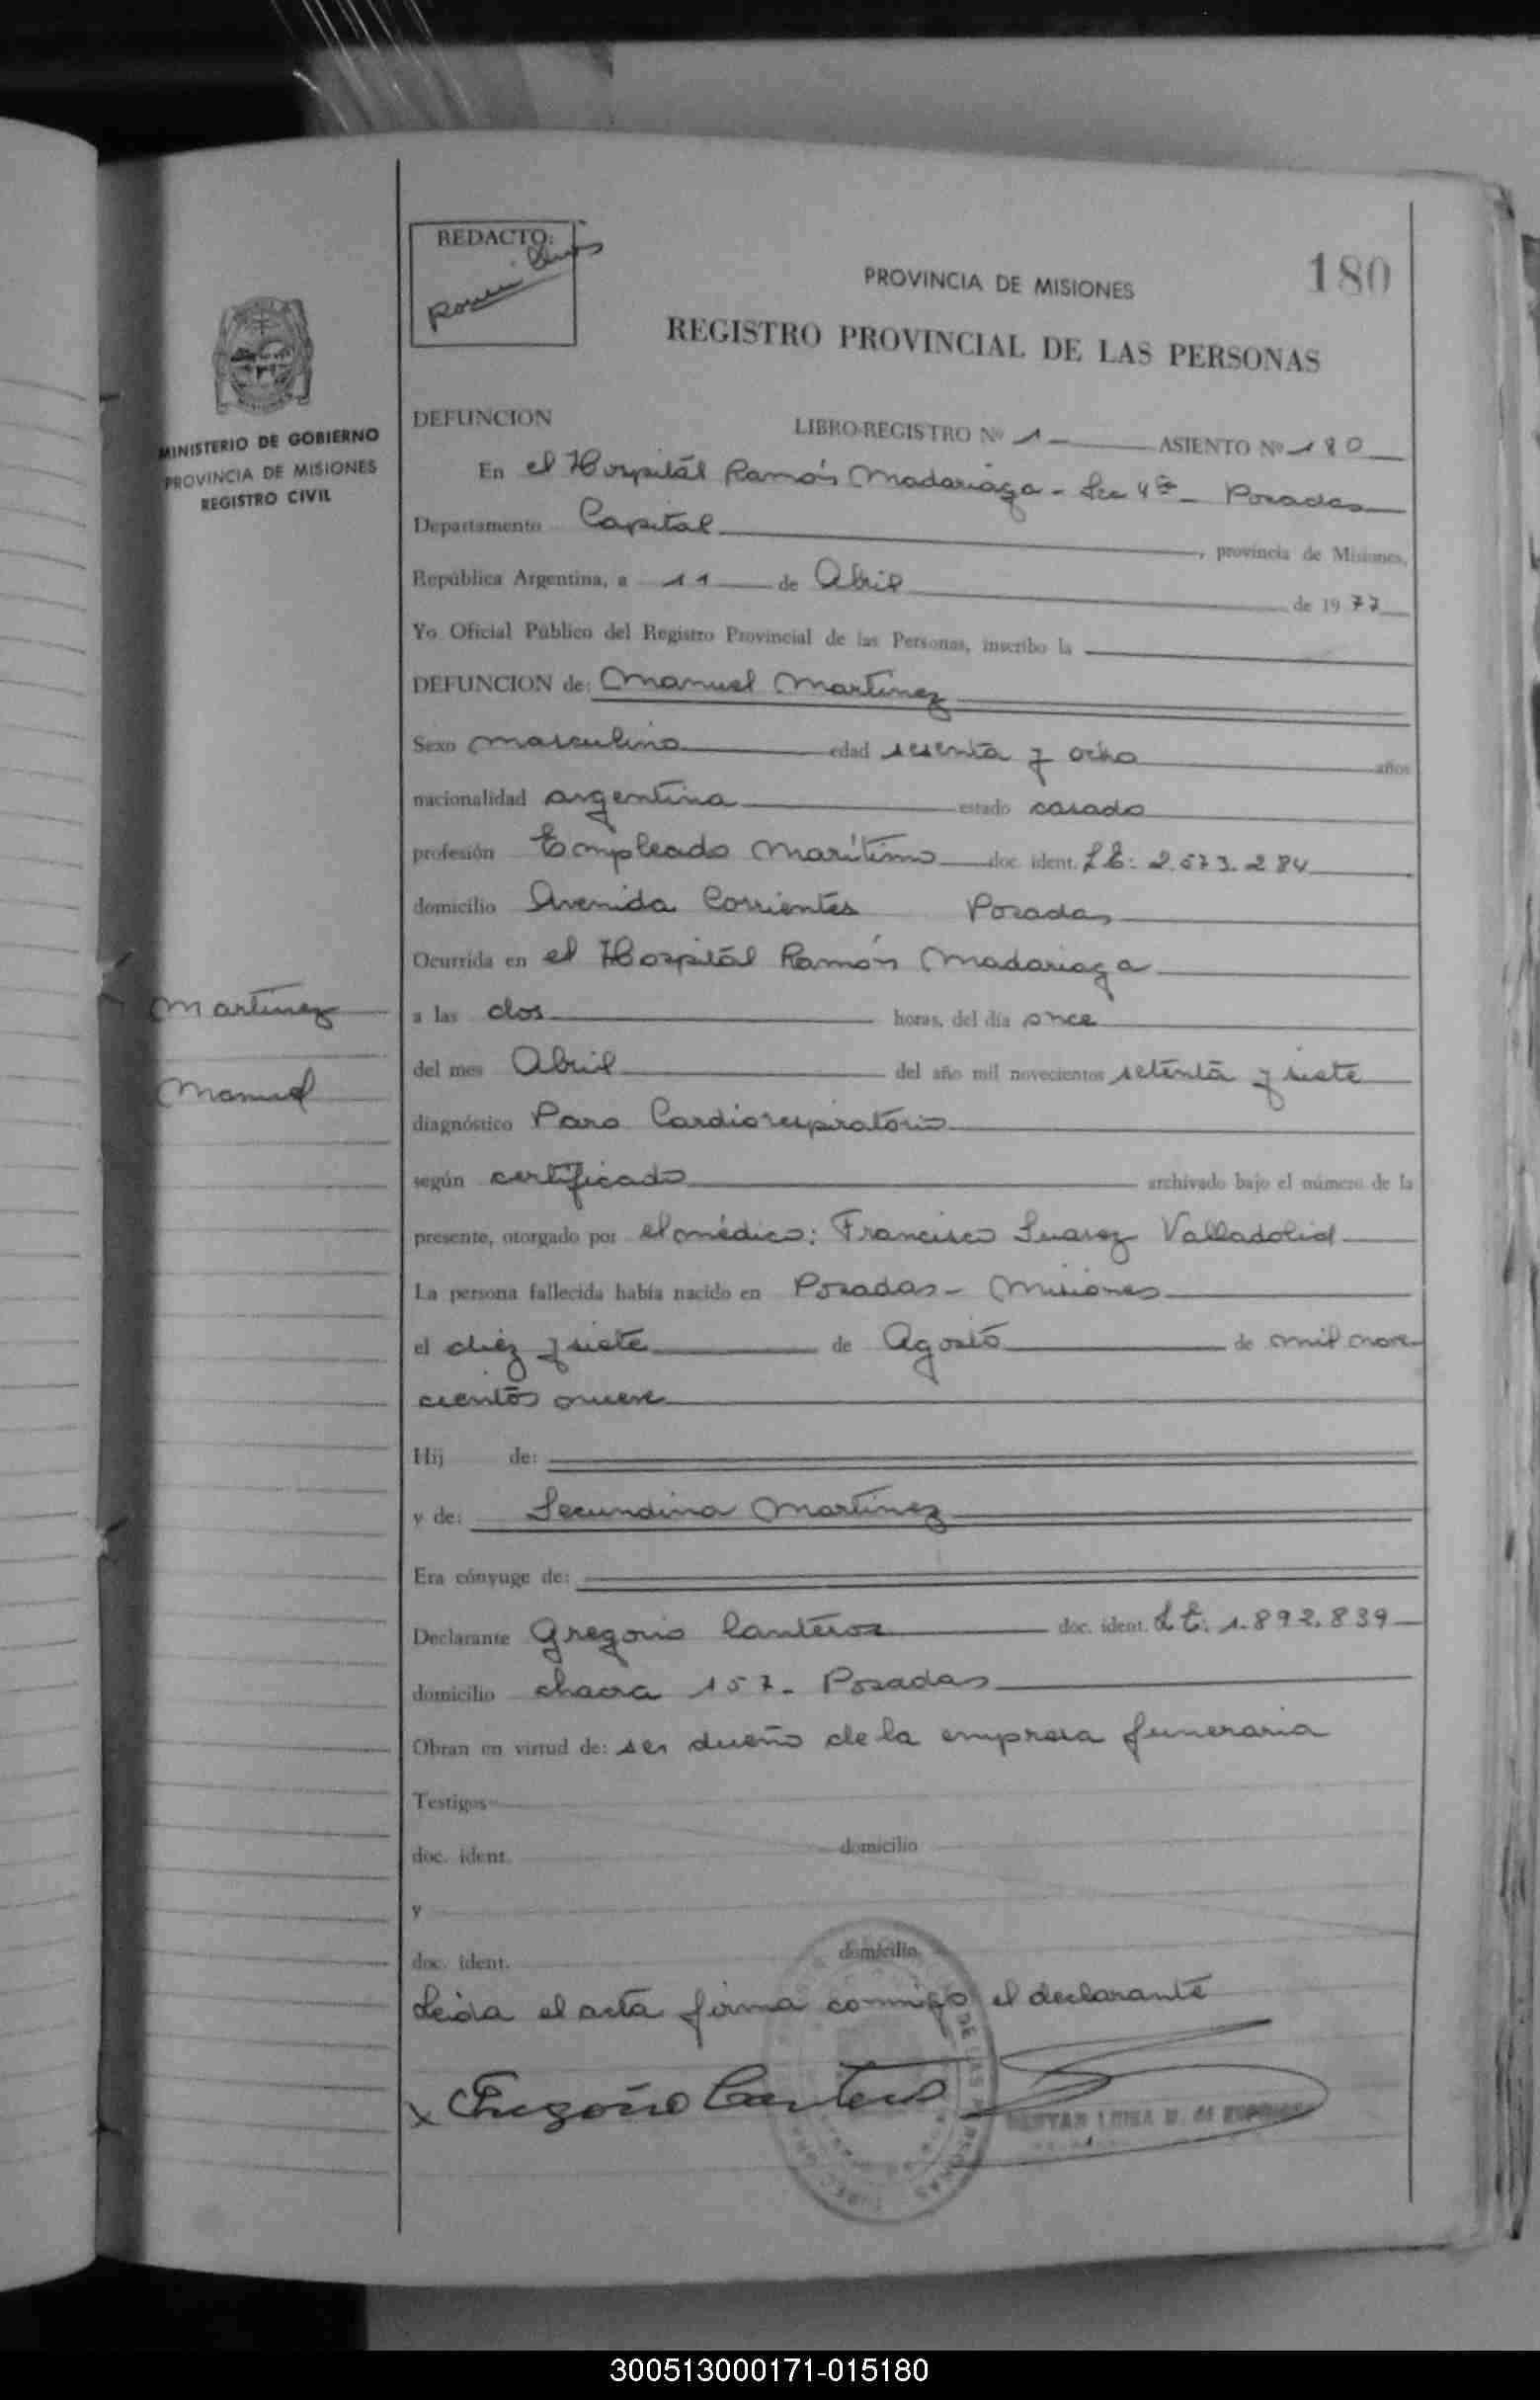 REDACTO:
180
PROVINCIA DE MISIONES
REGISTRO PROVINCIAL DE LAS PERSONAS
MINISTERIO DE GOBIERNO
PROVINCIA DE MISIONES
REGISTRO CIVIL
DEFUNCION LIBRO-REGISTRO Nº 1 ASIENTO Nº 180
En el Hospital Ramón Madariaga - Sec 4ª - Posadas
Departamento Capital, provincia de Misiones,
República Argentina, a 11 de Abril de 1977
Yo Oficial Público del Registro Provincial de las Personas, inscribo la
DEFUNCION de: Manuel Martinez
Sexo masculino edad sesenta y ocho años
nacionalidad argentina estado casado
profesión Empleado Marítimo doc. ident. L E: 2.573.284
domicilio Avenida Corrientes Posadas
Ocurrida en el Hospital Ramón Madariaga
Martinez
a las dos horas, del día once
del mes Abril del año mil novecientos setenta y siete
Manuel
diagnóstico Paro Cardiorespiratorio
según certificado archivado bajo el número de la
presente, otorgado por el médico: Francisco Suarez Valladolid
La persona fallecida había nacido en Posadas - Misiones
el diez y siete de Agosto de mil nove
cientos nueve
Hij de:
y de: Secundina Martinez
Era cónyuge de:
Declarante Gregorio Canteros doc. ident. L E: 1.892.839
domicilio chacra 157 - Posadas
Obran en virtud de: ser dueño de la empresa funeraria
Testigos
doc. ident. domicilio
y
doc. ident. domicilio
Leida el acta firma conmigo el declarante
x Gregorio Canteros
300513000171-015180